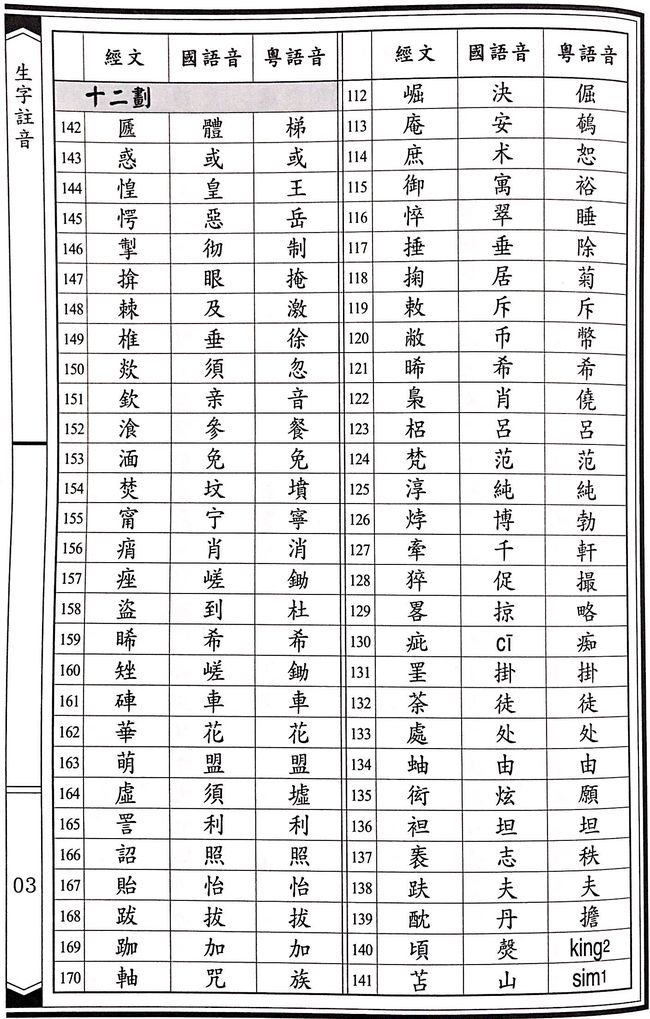 生字註音
經文 國語音 粵語音
112 崛 決 倔
113 庵 安 鵪
114 庶 术 恕
115 御 寓 裕
116 悴 翠 睡
117 捶 垂 除
118 掬 居 菊
119 敕 斥 斥
120 敝 币 幣
121 晞 希 希
122 梟 肖 僥
123 梠 呂 呂
124 梵 范 范
125 淳 純 純
126 烀 博 勃
127 牽 千 軒
128 猝 促 撮
129 畧 掠 略
130 疵 cī 痴
131 罣 掛 掛
132 荼 徒 徒
133 處 处 处
134 蚰 由 由
135 衒 炫 願
136 袒 坦 坦
137 袠 志 秩
138 趺 夫 夫
139 酖 丹 擔
140 頃 漀 king2
141 苫 山 sim1
經文 國語音 粵語音
十二劃
142 匾 體 梯
143 惑 或 或
144 惶 皇 王
145 愕 惡 岳
146 掣 彻 制
147 揜 眼 掩
148 棘 及 激
149 椎 垂 徐
150 欻 須 忽
151 欽 亲 音
152 湌 參 餐
153 湎 免 免
154 焚 坟 墳
155 甯 宁 寧
156 痟 肖 消
157 痤 嵯 鋤
158 盜 到 杜
159 睎 希 希
160 矬 嵯 鋤
161 硨 車 車
162 華 花 花
163 萌 盟 盟
164 虛 須 墟
165 詈 利 利
166 詔 照 照
167 貽 怡 怡
168 跋 拔 拔
169 跏 加 加
170 軸 咒 族
03